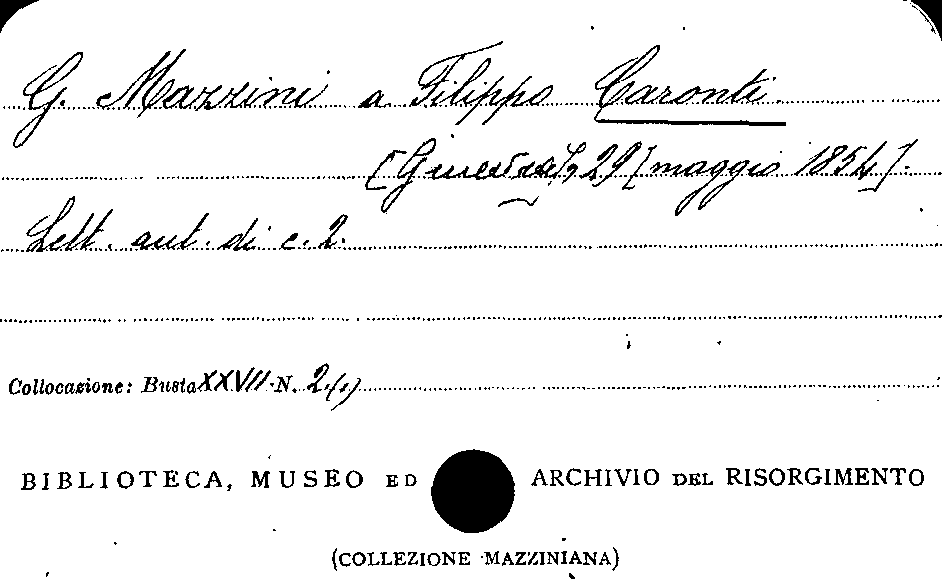 G. Mazzini a Filippo Caronti.
[Ginevra], 29 [maggio 1854].
Lett. aut. di c. 2.
Collocazione: Busta XXVII N. 2.(1)
BIBLIOTECA, MUSEO ED ARCHIVIO DEL RISORGIMENTO
(COLLEZIONE MAZZINIANA)